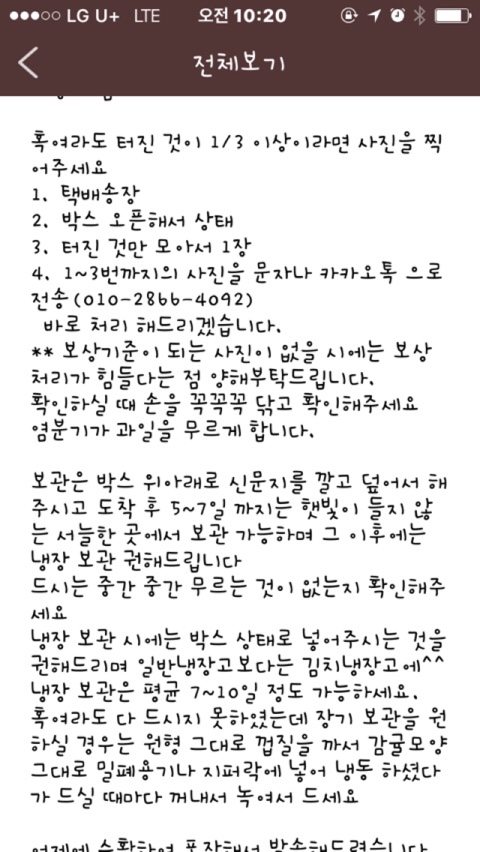 LG U+ LTE 오전 10:20
전체보기
혹여라도 터진 것이 1/3 이상이라면 사진을 찍
어주세요
1. 택배송장
2. 박스 오픈해서 상태
3. 터진 것만 모아서 1장
4. 1~3번까지의 사진을 문자나 카카오톡 으로
전송(010-2866-4092)
바로 처리 해드리겠습니다.
** 보상기준이 되는 사진이 없을 시에는 보상
처리가 힘들다는 점 양해부탁드립니다.
확인하실 때 손을 꼭꼭꼭 닦고 확인해주세요
염분기가 과일을 무르게 합니다.
보관은 박스 위아래로 신문지를 깔고 덮어서 해
주시고 도착 후 5~7일 까지는 햇빛이 들지 않
는 서늘한 곳에서 보관 가능하며 그 이후에는
냉장 보관 권해드립니다
드시는 중간 중간 무르는 것이 없는지 확인해주
세요
냉장 보관 시에는 박스 상태로 넣어주시는 것을
권해드리며 일반냉장고보다는 김치냉장고에^^
냉장 보관은 평균 7~10일 정도 가능하세요.
혹여라도 다 드시지 못하였는데 장기 보관을 원
하실 경우는 원형 그대로 껍질을 까서 감귤모양
그대로 밀폐용기나 지퍼락에 넣어 냉동 하셨다
가 드실 때마다 꺼내서 녹여서 드세요